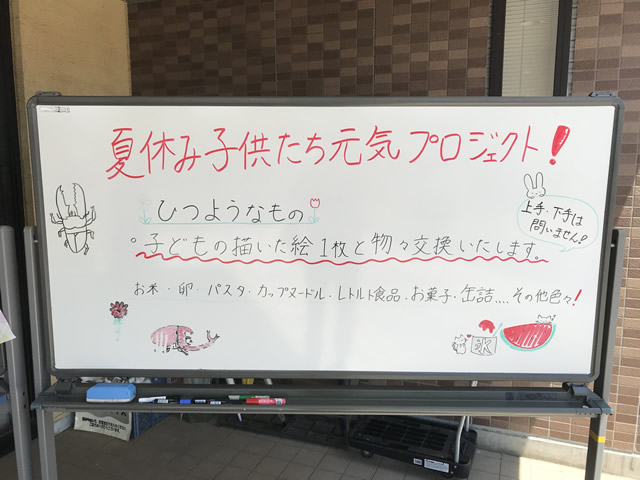 夏休み子供たち元気プロジェクト!
ひつようなもの
上手・下手は
問いません!
。子どもの描いた絵1枚と物々交換いたします。
お米・卵・パスタ・カップヌードル・レトルト食品・お菓子・缶詰....その他色々!
氷